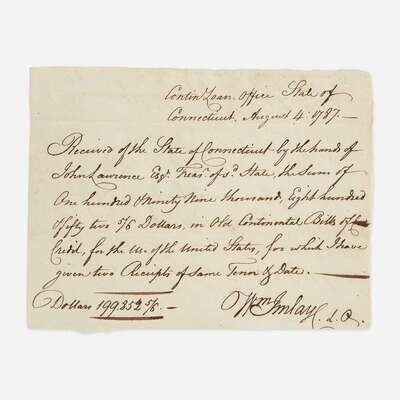 Contin.l Loan Office State of
Connecticut. August 4. 1787.—
Received of the State of Connecticut by the hands of
John Lawrence Esq.r Treas.r of s.d State, the Sum of
One hundred & Ninety Nine thousand, Eight hundred
& fifty two 5/6 Dollars, in Old Continental Bills of
Credit, for the Use of the United States, for which I have
given two Receipts of same Tenor & Date.—
Dollars 199.852 5/6.— Wm Imlay C. L. O.